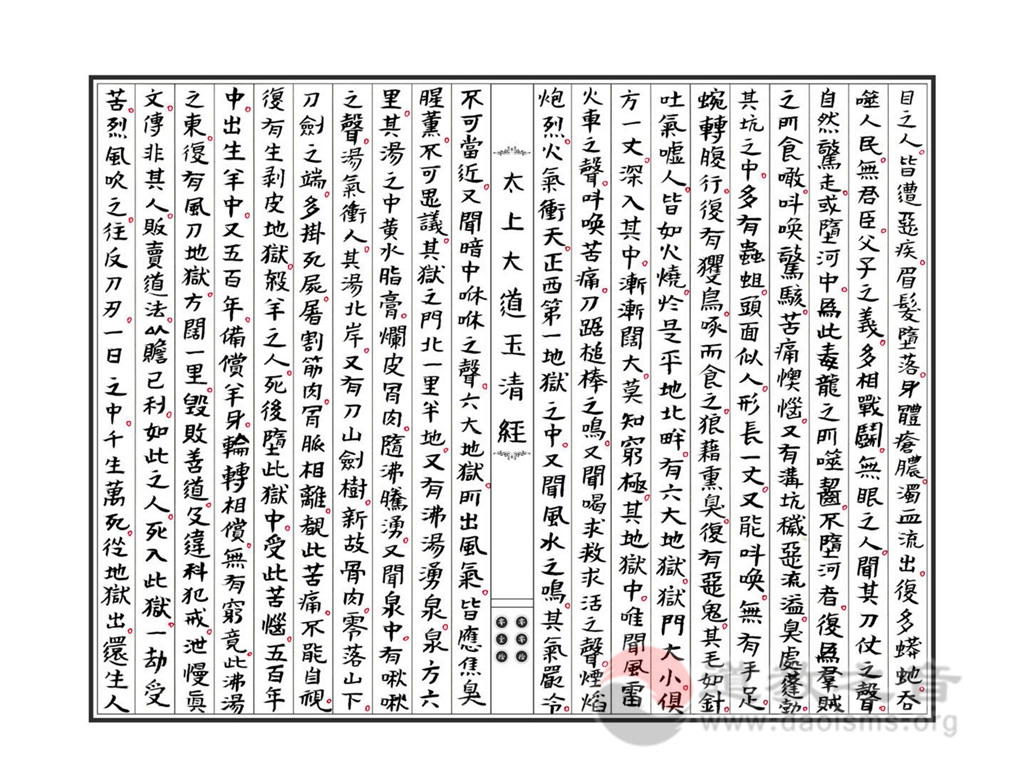 目之人。皆遭惡疾。眉髮墮落。身體瘡膿。濁血流出。復多蟒虵吞
噬人民。無君臣父子之義。多相戰鬪。無眼之人。聞其刀仗之聲。
自然驚走。或墮河中。爲此毒龍之所噬齧。不墮河者。復爲羣賊
之所食噉。呌喚驚駭。苦痛懊惱。又有溝坑。穢惡流溢。臭處蓬勃。
其坑之中。多有蟲蛆。頭面似人。形長一丈。又能呌喚。無有手足。
蜿轉腹行。復有玃鳥。啄而食之。狼藉熏臭。復有惡鬼。其毛如針。
吐氣噓人。皆如火燒。於是平地北畔。有六大地獄。獄門大小。俱
方一丈。深入其中。漸漸闊大。莫知窮極。其地獄中。唯聞風雷
火車之聲。呌喚苦痛。刀踞槌棒之鳴。又聞喝求救求活之聲。煙焰
炮烈。火氣衝天。正西第一地獄之中。又聞風水之鳴。其氣嚴冷。
太上大道玉清經
不可當近。又聞暗中咻咻之聲。六大地獄。所出風氣。皆應焦臭
腥薰。不可思議。其獄之門北一里半地。又有沸湯湧泉。泉方六
里。其湯之中。黄水脂膏。爛皮骨肉。隨沸騰湧。又聞泉中。有啾啾
之聲。湯氣衝人。其湯北岸。又有刀山劍樹。新故骨肉。零落山下。
刀劍之端。多掛死屍。屠割筋肉。骨脈相離。覩此苦痛。不能自視。
復有生剥皮地獄。殺羊之人。死後墮此獄中。受此苦惱。五百年
中。出生羊中。又五百年。備償羊身。輪轉相償。無有窮竟。此沸湯
之東。復有風刀地獄。方闊一里。毀敗善道。及違科犯戒。泄慢眞
文。傳非其人。販賣道法。以贍己利。如此之人。死入此獄。一劫受
苦。烈風吹之。往反刀刃。一日之中。千生萬死。從地獄出。還生人